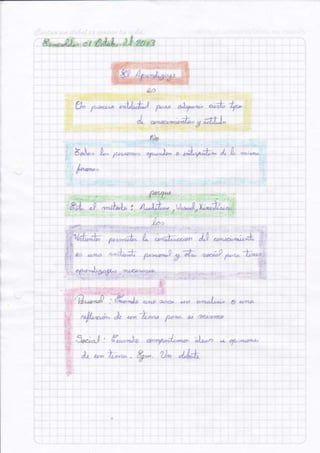 El Aprendizaje
es
Un proceso intelectual para adquirir cierto tipo
de conocimientos y actitudes
No
Todas las personas aprenden o interpretan de la misma
forma
porque
Está el método: Auditivo, Visual, Kinestésico
Los
permiten la construcción del conocimiento
es una personal y otra social para tener
aprendizajes necesarios
Personal: Cuando uno hace un análisis o una
reflexión de un tema para sí mismo
Social: Cuando compartimos ideas u opiniones
de un tema. Ejm. Un debate